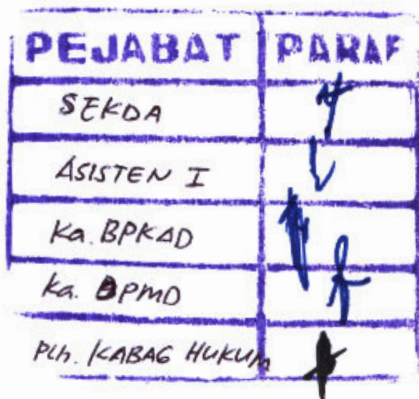 PEJABAT PARAF
SEKDA
ASISTEN I
Ka. BPKAD
Ka. DPMD
Plh. KABAG HUKUM